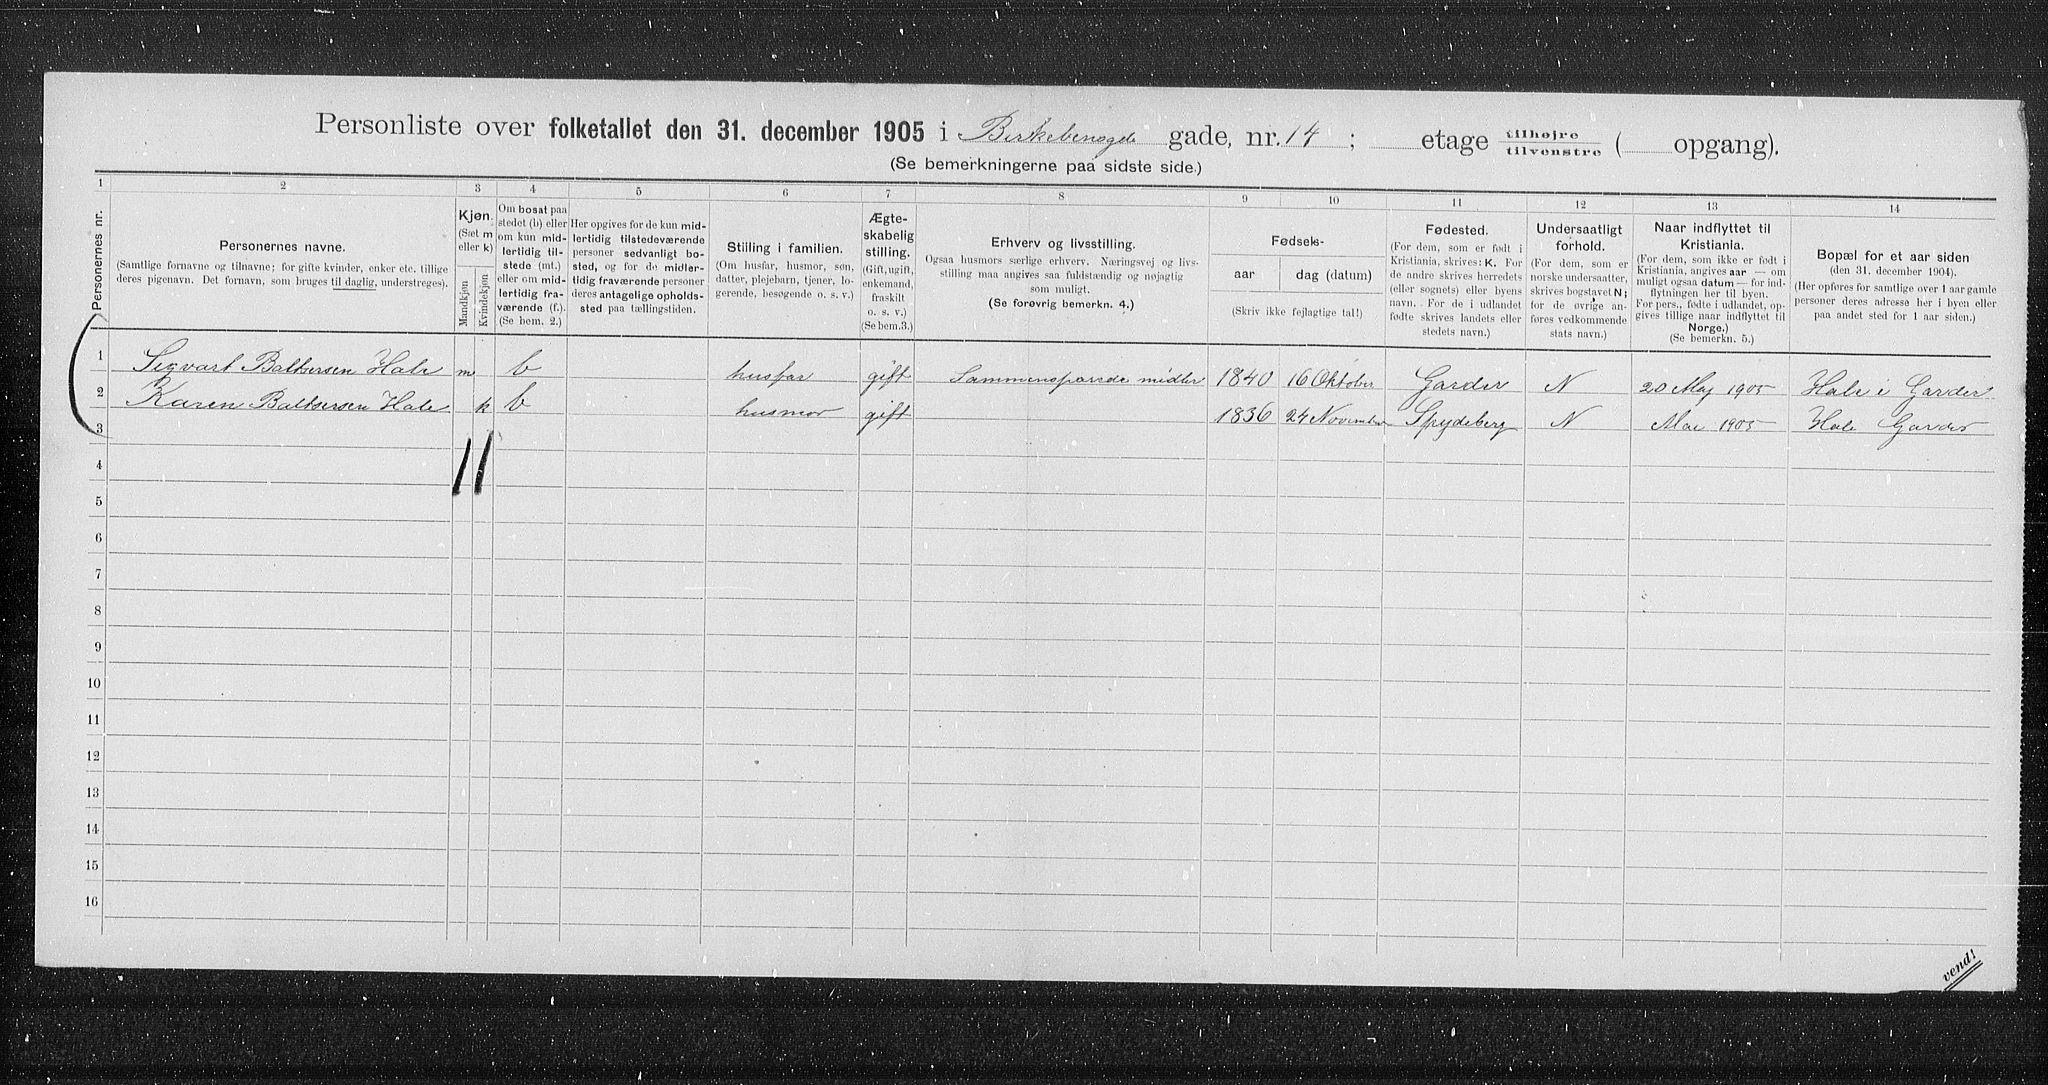 Personliste over folketallet den 31. december 1905 i Birkebensgde gade, nr. 14; etage tilhøjre tilvenstre ( opgang).
(Se bemerkningerne paa sidste side.)
1 2 3 4 5 6 7 8 9 10 11 12 13 14
Personernes nr.
Personernes navne.
(Samtlige fornavne og tilnavne; for gifte kvinder, enker etc. tillige
deres pigenavn. Det fornavn, som bruges til daglig, understreges).
Kjøn.
(Sæt m
eller k)
Mandkjøn
Kvindekjøn
Om bosat paa
stedet (b) eller
om kun mid-
lertidig til-
stede (mt.)
eller om mid-
lertidig fra-
værende (f.).
(Se bem. 2.)
Her opgives for de kun mid-
lertidig tilstedeværende
personer sedvanligt bo-
sted, og for de midler-
tidig fraværende personer
deres antagelige opholds-
sted paa tællingstiden.
Stilling i familien.
(Om husfar, husmor, søn,
datter, plejebarn, tjener, lo-
gerende, besøgende o. s. v.)
Ægte-
skabelig
stilling.
(Gift, ugift,
enkemand,
fraskilt
o. s. v.)
(Se bem.3.)
Erhverv og livsstilling.
Ogsaa husmors særlige erhverv. Næringsvej og livs-
stilling maa angives saa fuldstændig og nøjagtig
som muligt.
(Se forøvrig bemerkn. 4.)
Fødsels-
aar dag (datum)
(Skriv ikke fejlagtige tal!)
Fødested.
(For dem, som er født i
Kristiania, skrives: K. For
de andre skrives herredets
(eller sognets) eller byens
navn. For de i udlandet
fødte skrives landets eller
stedets navn.)
Undersaatligt
forhold.
(For dem, som er
norske undersaatter,
skrives bogstavet N;
for de øvrige an-
føres vedkommende
stats navn.)
Naar indflyttet til
Kristiania.
(For dem, som ikke er født i
Kristiania, angives aar — om
muligt ogsaa datum — for ind-
flytningen her til byen.
For pers., fødte i udlandet, op-
gives tillige naar indflyttet til
Norge.)
(Se bemerkn. 5.)
Bopæl for et aar siden
(den 31. december 1904).
(Her opføres for samtlige over 1 aar gamle
personer deres adresse her i byen eller
paa andet sted for 1 aar siden.)
1 Sigvart Baltsersen Hale m b husfar gift Sammensparede midler 1840 16 Oktober Garder N 20 Maj 1905 Hale i Garder
2 Karen Baltsersen Hale k b husmor gift 1836 24 November Spydeberg N Mai 1905 Hale Garder
3
4
5
6
7
8
9
10
11
12
13
14
15
16
vend!